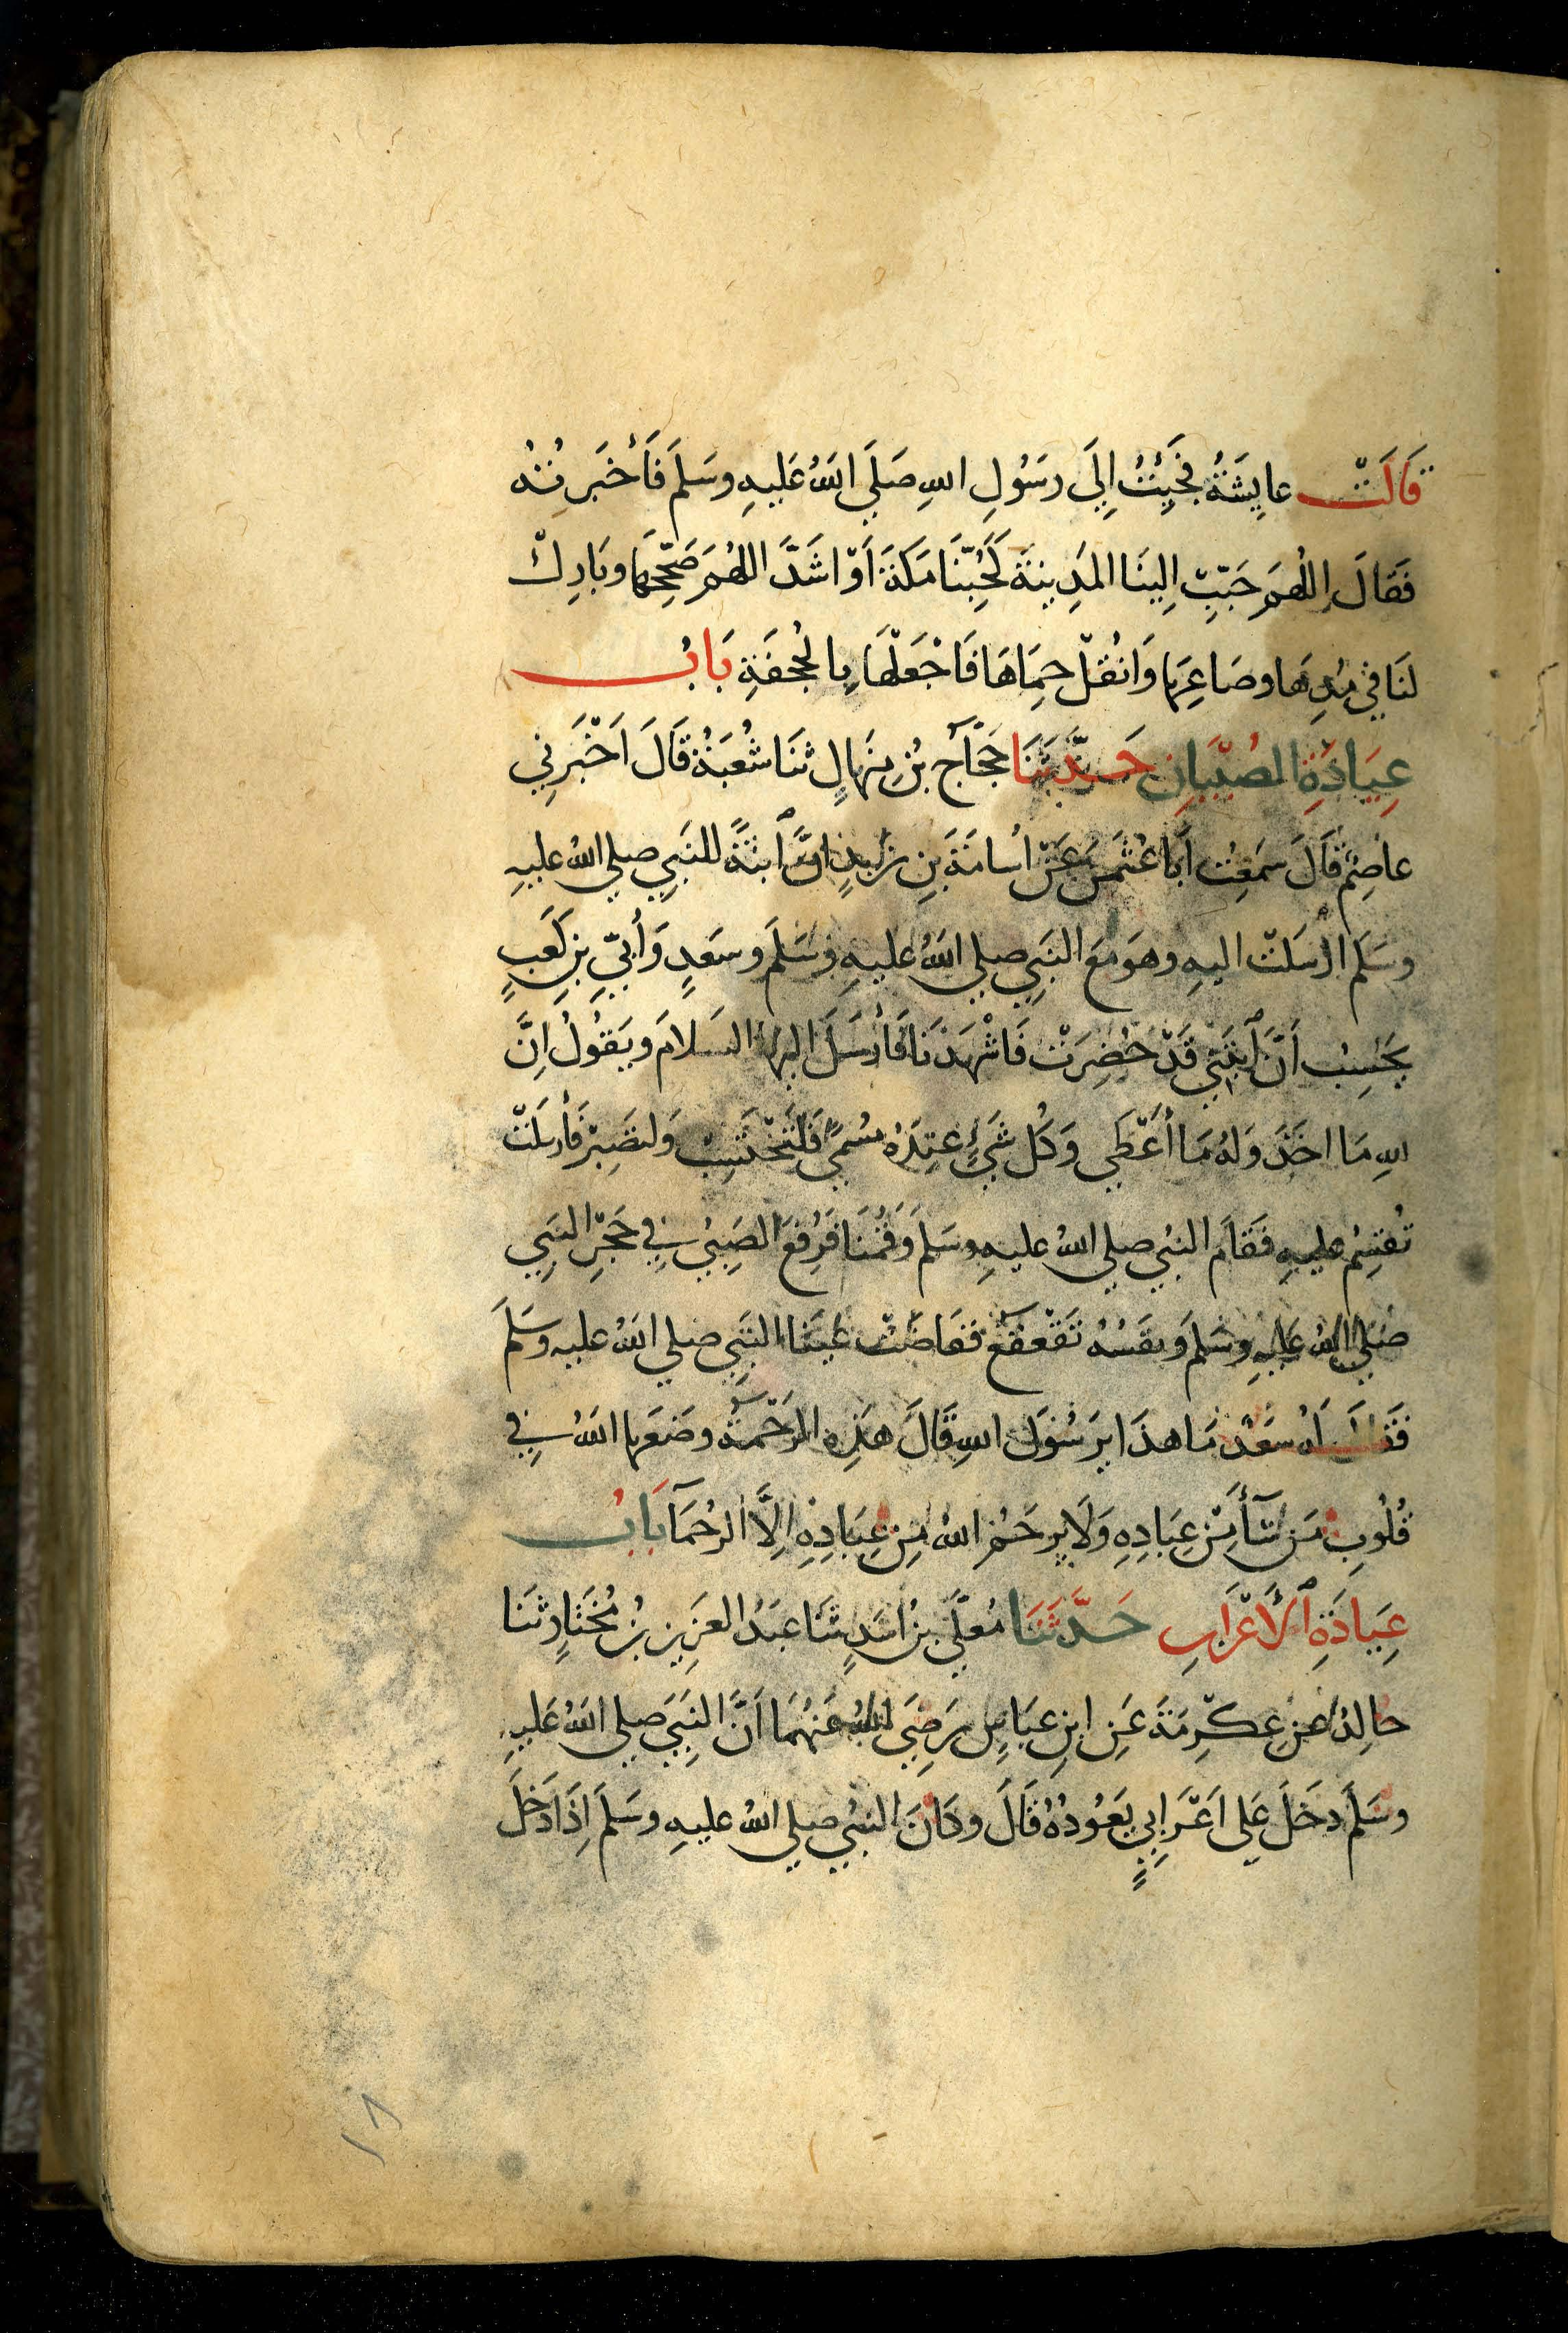 قَالَتْ عايِشَةُ فَجَيِئْتُ اِلَي رسَوُلِ اللهِ صَلَي اللهُ عَليهِ وسَلمَ فَأخْبَرتُهُ
فَقَالَ اللهُمَ حَبّبْ اِلينَا المَدِينَةَ كَحُبّنَا مَكَةَ اَوْ اشَدَّ اللهُمَ صَحّحِهَا وبَارِكْ
لنَا في مُدِهَا وصَاعِهَا وَانقُلْ حِمَاهَا فَاجْعَلْهَا بِالجُحفَةِ بَابُ
عِيَادَةِ الصُبْيَانِ حَدَّثَنَا حَجَّاجُ بْنُ مِنهَالٍ ثنَا شُعْبَةُ قَالَ اَخْبَرَنِي
عاصِمٌ قَالَ سمَعِتُ اَبَا عُثمَنَ عَنْ اُسامَةَ بنِ زَيدٍ انَّ اَبنَةً للنَبِي صلي اللهُ عليهِ
وسَلم ارْسَلتْ اليهِ وهوَ مَعَ النَبِي صلي اللهُ عليهِ وسَلمَ وسَعدٍ وَأُبَيّ بنِ كَعَبٍ
يحَسِبُ اَنَّ اَبنَتِي قَدْ حَضِرَتْ فَاشْهَدْنَا فَأرْسَلَ اليهَا السَلامَ ويَقُولُ اِنَّ
للهِ مَا اخَذَ وَلهُ مَا اُعْطَي وَكُل شَيْءٍ عِندَهُ مُسُمَيً فَلتَحْتَسِبْ وَلتَصَبِرْ فَأرسَلتْ
تُقسِمُ عليهِ فَقَامَ النبيُ صلي اللهُ عليهِ وسَلمَ وَقُمْنَا فَرُفعَ الصَبِيُ في حَجْرِ النبَيِ
صَلي اللهُ عَليهِ وسَلمَ وَنفَسُهُ تَقَعْقَعُ ففَاضَتْ عَينَا النَبِي صلي اللهُ عليهِ وسَلمَ
فَقَالَ لَهُ سَعَدٌ مَا هذَا يرَسُولَ اللهِ قَالَ هَذِهِ الرَحْمةُ وضَعَهَا اللهُ في
قُلُوبِ مَن شَآءَ مِنْ عِبَادِهِ وَلَا يرحَمُ اللهُ مِن عِبَادِهِ اِلَّا الرُحمَآ بَابُ
عِيَادَةِ الأَعْرَابِ حَدَّثَنَا مُعَلَّي بنُ اسَدٍ ثَنَا عبَدُ العَزِيزِ بنُ مُختَارٍ ثنَا
خالِدٌ عَنِ عِكْرِمَةَ عَنِ ابنِ عبَاسٍ رَضِيَ اللهُ عَنهُمَا اَنَّ النبَيَ صلي اللهُ عَليهِ
وسَلمَ دخَلَ عَلي اَعْرَابيٍ يَعَوُدُهُ قَالَ وكَانَ النبيُ صلي اللهُ عليهِ وسَلمَ اِذَا دَخَلَ